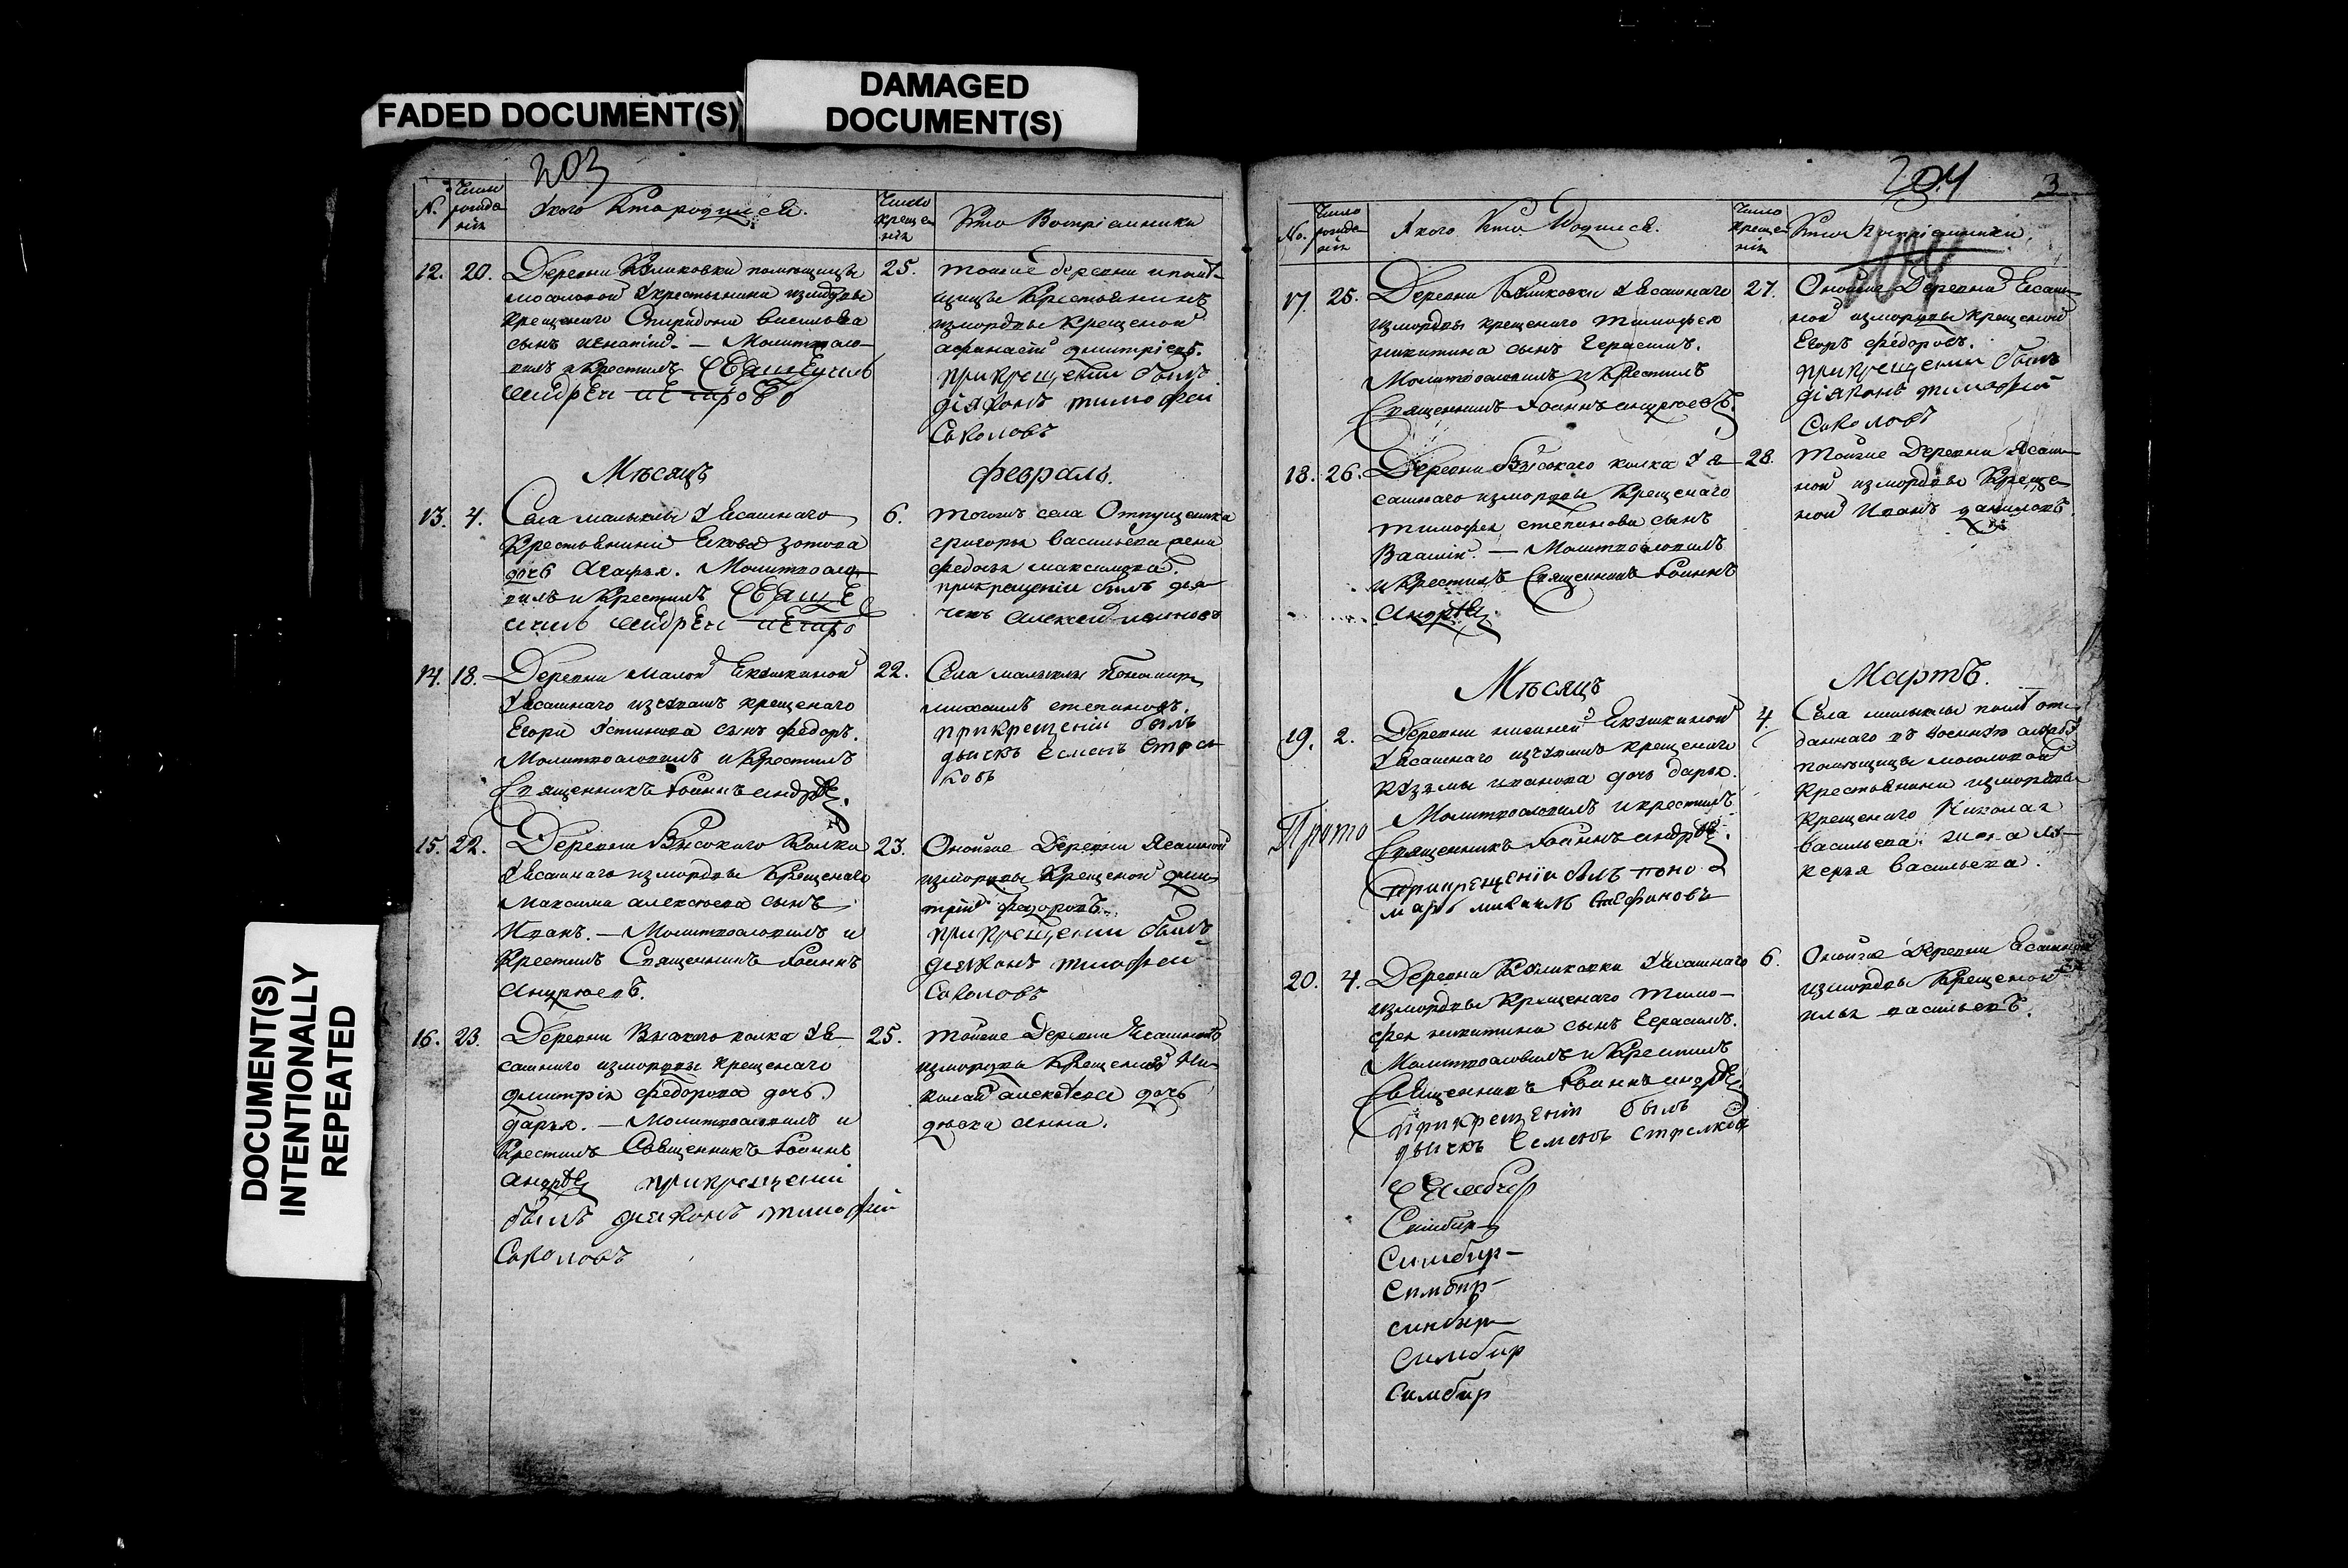 FADED DOCUMENT(S)
DAMAGED
DOCUMENT(S)
DOCUMENT(S)
INTENTIONALLY
REPEATED
203
N.
Число рождения
У кого кто родился.
Число крещения
Кто Восприемники
12. 20.
Деревни помещицы
крестьянина измордвы
крещенаго Спиридона Васильева
сынъ Игнатий. — Молитвосло-
вилъ и Крестилъ
25.
тоже деревни
Крестьянинъ
измордвы Крещеной
Афанасей Дмитріевъ.
при крещении былъ
діяконъ тимофеи
Соколовъ
Мѣсяцъ
февраль.
13. 4.
Села малыклы Уясашнаго
Крестьянина зотова
дочь Агафья. Молитвосло-
вилъ и Крестилъ
6.
тогожъ села
григорья васильева жена
федосья максимова.
при крещении былъ дья-
чекъ алексей
14. 18.
Деревни малой
Уясашнаго изчувашъ крещенаго
Егора Устинова сынъ федоръ.
Молитвословилъ и Крестилъ
Священникъ Іоаннъ андрѣе
22.
Села малыклы Пономарь
михаилъ степановъ.
при крещении былъ
дьячекъ Семенъ Стрел
ковъ
15. 22.
Деревни Высокаго Колка
Уясашнаго измордвы Крещенаго
Максима алексеева сынъ
Иванъ. — Молитвословилъ и
Крестилъ Священникъ Іоаннъ
Андреевъ.
23.
Оной же Деревни Ясашной
измордвы Крещеной дми-
трий федоровъ.
при крещении былъ
діяконъ тимофеи
Соколовъ
16. 23.
Деревни Высокаго колка Уя-
сашнаго измордвы крещенаго
дмитрія федорова дочь
дарья. — Молитвословилъ и
Крестилъ Священникъ Іоаннъ
андрѣе при крещении
былъ діяконъ тимофей
Соколовъ
25.
той же Деревни Ясашнаго
измордвы Крещенаго Ни-
колая алексѣева дочь
девка анна.
204
3
No.
Число рождения
У кого Кто Родился.
Число крещения
Кто Восприемники
17. 25.
Деревни Уясашнаго
измордвы крещенаго тимофея
никитина сынъ Герасимъ.
Молитвословилъ и Крестилъ
Священникъ Іоаннъ андреевъ.
27.
Оной же Деревни Ясаш-
ной измордвы крещеной
Егоръ федоровъ.
при крещении былъ
діяконъ тимофей
Соколовъ
18. 26.
Деревни Высокаго колка Уя-
сашнаго измордвы Крещенаго
тимофея степанова сынъ
— Молитвословилъ
и Крестилъ Священникъ Іоаннъ
андрѣе
28.
той же Деревни Ясаш-
ной измордвы Креще-
ной Иванъ даниловъ.
Мѣсяцъ
Мартъ.
19. 2.
Деревни нижней
Уясашнаго изчувашъ крещенаго
Кузмы иванова дочь дарья.
Прото
Молитвословилъ и крестилъ
Священникъ Іоаннъ андрѣе
при крещении былъ поно
марь михаилъ
4.
Села малыклы
даннаго въ военную службу
помещицы
Крестьянина измордвы
Крещенаго Николая
васильева жена лу-
керья васильева.
20. 4.
Деревни Уясашнаго
измордвы Крещенаго тимо-
фея никитина сынъ Герасимъ.
Молитвословилъ и Крестилъ
Священникъ Іоаннъ андрѣе
при крещении былъ
дьячекъ Семенъ Стрелков
6.
Оной же Деревни Ясашной
измордвы Крещеной
илья васильевъ.
Симбир
Симбир—
Симбир—
синбир
Симбир
Симбир